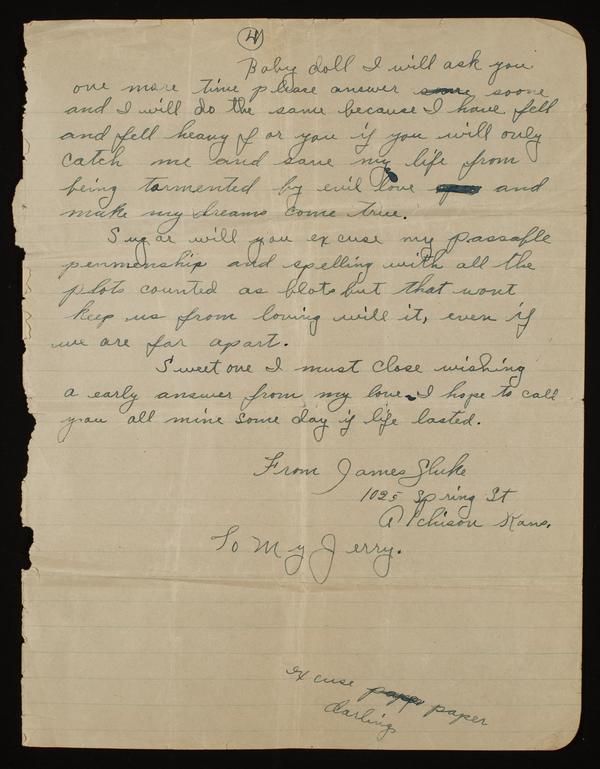 4
Baby doll I will ask you
one more time please answer some soone
and I will do the same because I have fell
and fell heavy for you if you will only
catch me and save my life from
being tormented by evil love and
make my dreams come true.
Sugar will you excuse my passable
penmenship and spelling with all the
plots counted as blots but that wont
keep us from loving will it, even if
we are far apart.
Sweet one I must close wishing
a early answer from my love. I hope to call
you all mine some day if life lasted.
From James
1025 Spring St
Atchison Kans.
To My Jerry.
excuse paper
darling